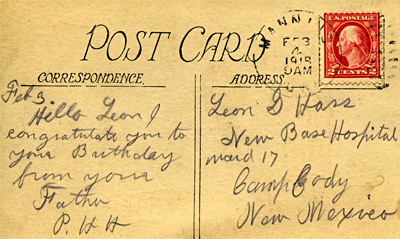 POST CARD
CORRESPONDENCE.
ADDRESS.
MANN
FEB
4
1918
9AM
U.S. POSTAGE
2 CENTS 2
Feb 3
Hillo Leon I
congratulate you to
your Birthday
from your
Father
P. H H
Leon D Hass
New Base Hospital
ward 17
Camp Cody
New Mexico